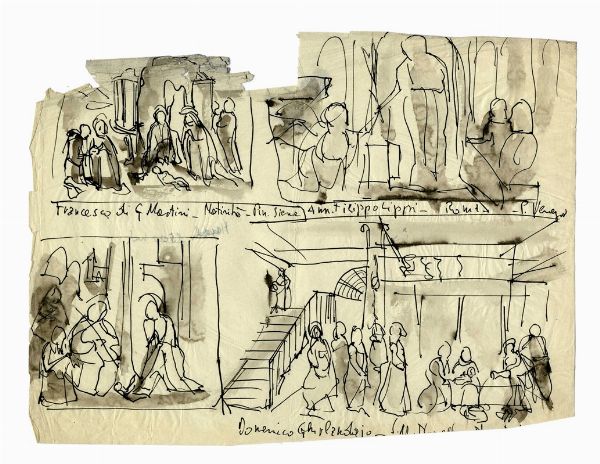 Francesco di G Martini - Natività - Pin. Siena
Ann. Filippo Lippi - Roma - P. Venezia
Domenico Ghirlandaio - M. Novella